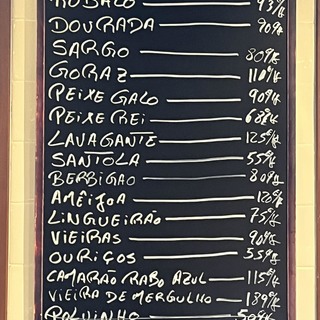 ROBALO 93€/K
DOURADA 90€/K
SARGO 80€/K
GORAZ 110€/K
PEIXE GALO 90€/K
PEIXE REI 68€/K
LAVAGANTE 125€/K
SANTOLA 55€/K
BERBIGAO 80€/K
AMÊIJOA 120€/K
LINGUEIRÃO 75€/K
VIEIRAS 90€/K
OURIÇOS 55€/K
CAMARÃO RABO AZUL 115€/K
VIEIRA DE MERGULHO 189€/K
POLVINHO 50€/K